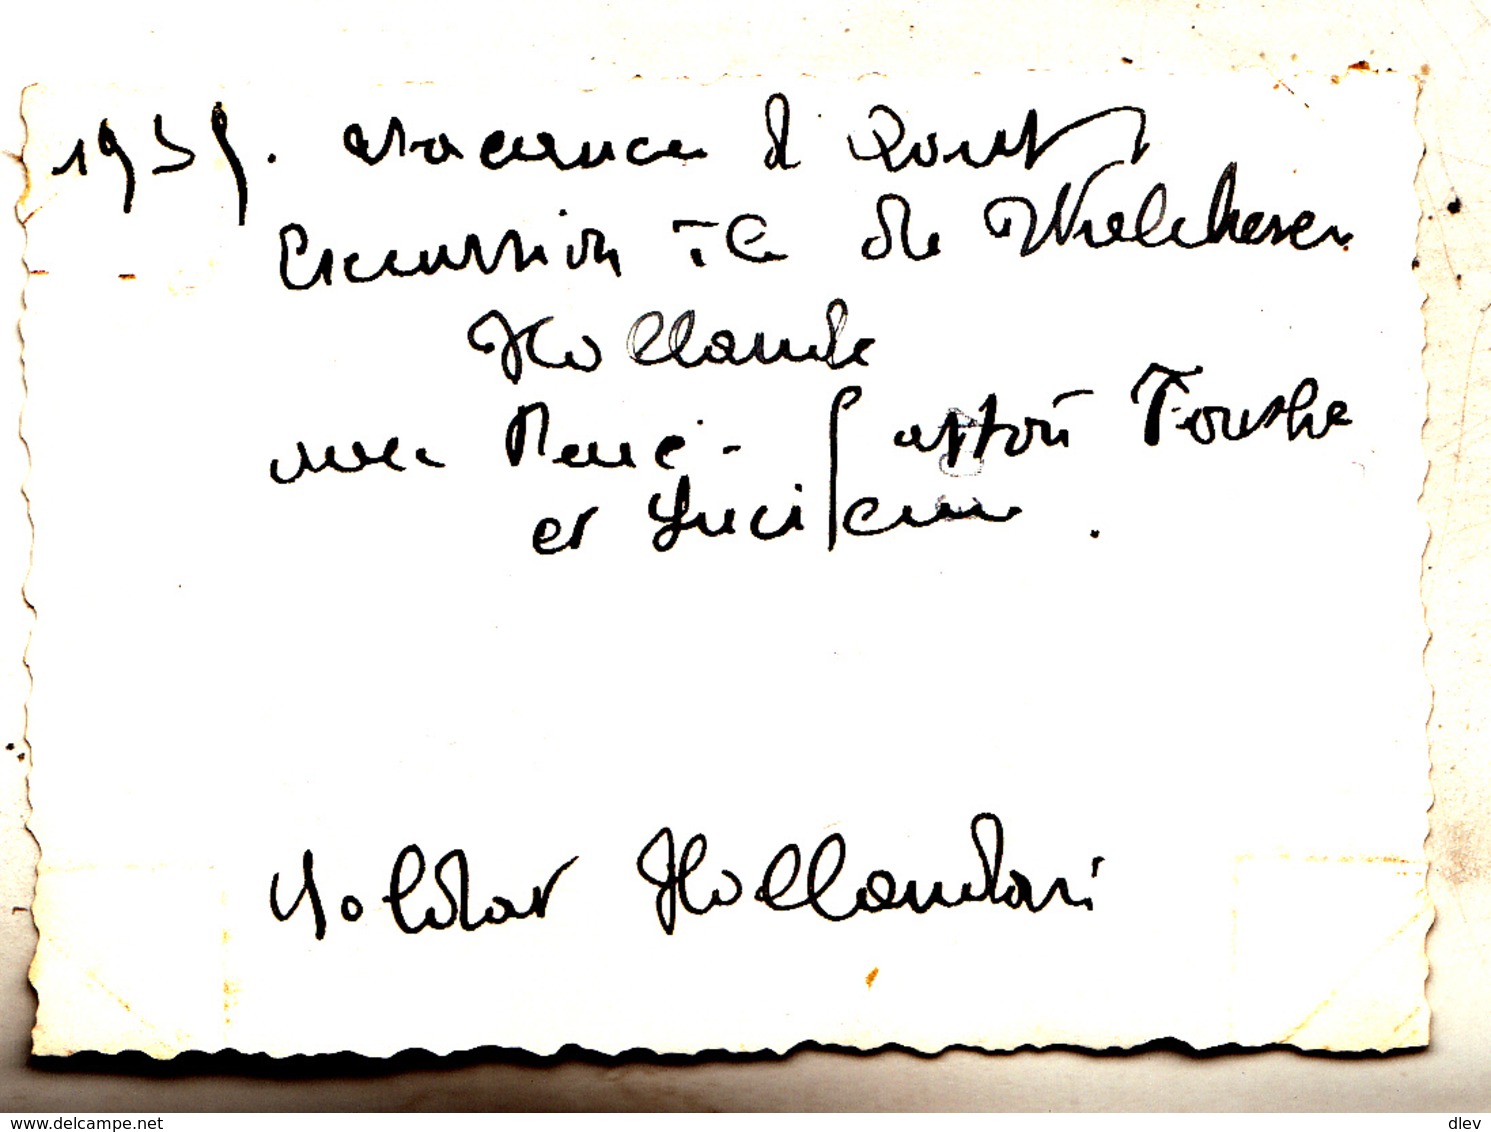 1939. vacance d'Aout
Excursion île de Walcheren
Hollande
avec René - Gaston Fouske
et Lucienne.
Soldat Hollandais
delcampe.net
dlev